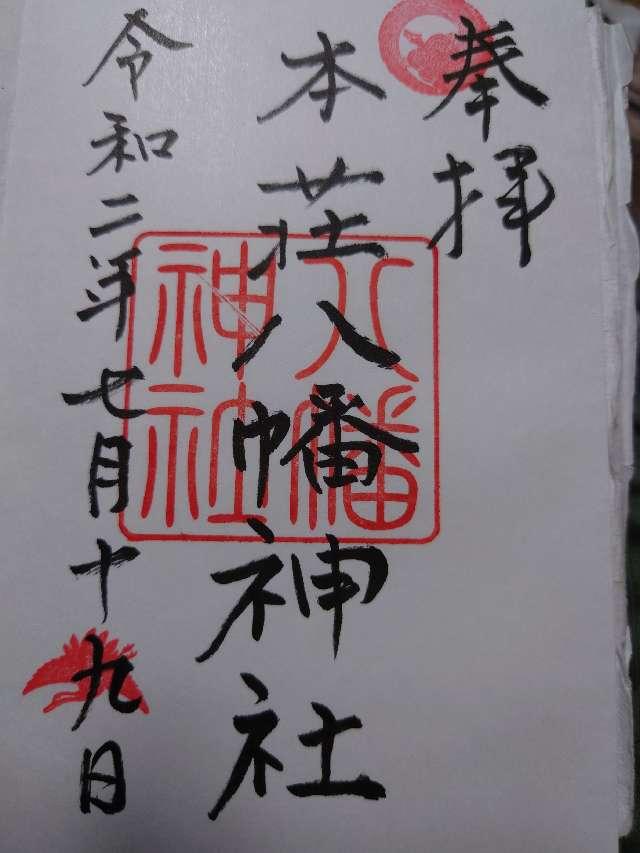 奉拝
本荘八幡神社
八幡
神社
令和二年七月十九日